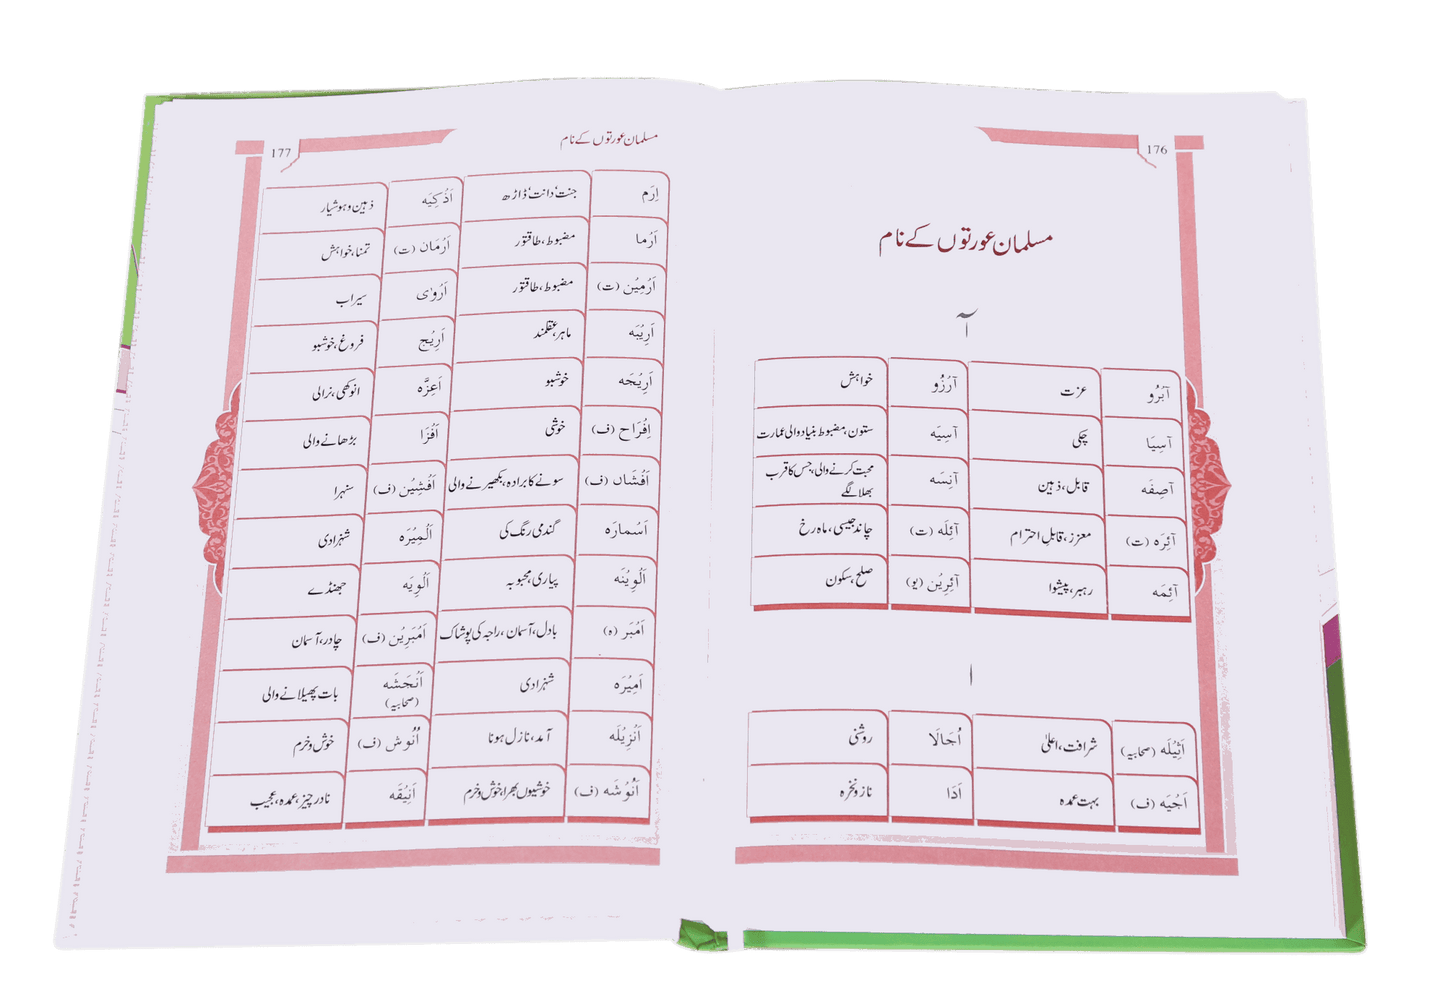 176
مسلمان عورتوں کے نام
آ
آبْرُو عزت آرْزُو خواہش
آسِیَا چکی آسِیَہ ستون، مضبوط بنیاد والی عمارت
آصِفَہ قابل، ذہین آنِسَہ محبت کرنے والی، جس کا قرب
بھلا لگے
آئِرَہ (ت) معزز، قابلِ احترام آئِلَہ (ت) چاند جیسی، ماہ رخ
آئِمَہ رہبر، پیشوا آئِرِیْن (یو) صلح، سکون
ا
اَثِیْلَہ (صحابیہ) شرافت، اعلیٰ اُجَالَا روشنی
اَجْیَہ (ف) بہت عمدہ اَدَا ناز و نخرہ
مسلمان عورتوں کے نام
177
اِرَم جنت، دانت، ڈاڑھ اَذْکِیَہ ذہین و ہوشیار
اَرْما مضبوط، طاقتور اَرْمَان (ت) تمنا، خواہش
اَرْمِیْن (ت) مضبوط، طاقتور اَرْوٰی سیراب
اَرِیْبَہ ماہر، عقلمند اَرِیْج فروغ، خوشبو
اَرِیْجَہ خوشبو اَعِزَّہ انوکھی، نرالی
اِفْرَاح (ف) خوشی اَفْزَا بڑھانے والی
اَفْشَاں (ف) سونے کا برادہ، بکھیرنے والی اَفْشِیْن (ف) سنہرا
اَسْمارَہ گندمی رنگ کی اَلْمِیْرَہ شہزادی
اَلْوِیْنَہ پیاری، محبوبہ اَلْوِیَہ جھنڈے
اَمْبَر (ہ) بادل، آسمان، راجہ کی پوشاک اَمْبَرِیْن (ف) چادر، آسمان
اَمِیْرَہ شہزادی اَنْجَشَہ بات پھیلانے والی
(صحابیہ)
اَنْزِیْلَہ آمد، نازل ہونا اَنُوش (ف) خوش و خرم
اَنُوْشَہ (ف) خوشیوں بھرا، خوش و خرم اَنِیْقَہ نادر چیز، عمدہ، عجیب